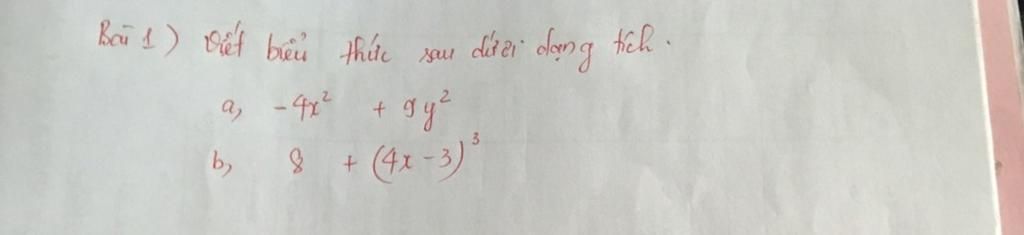 Bài 1) Viết biểu thức sau dưới dạng tích.
a, -4x² + 9y²
b, 8 + (4x - 3)³